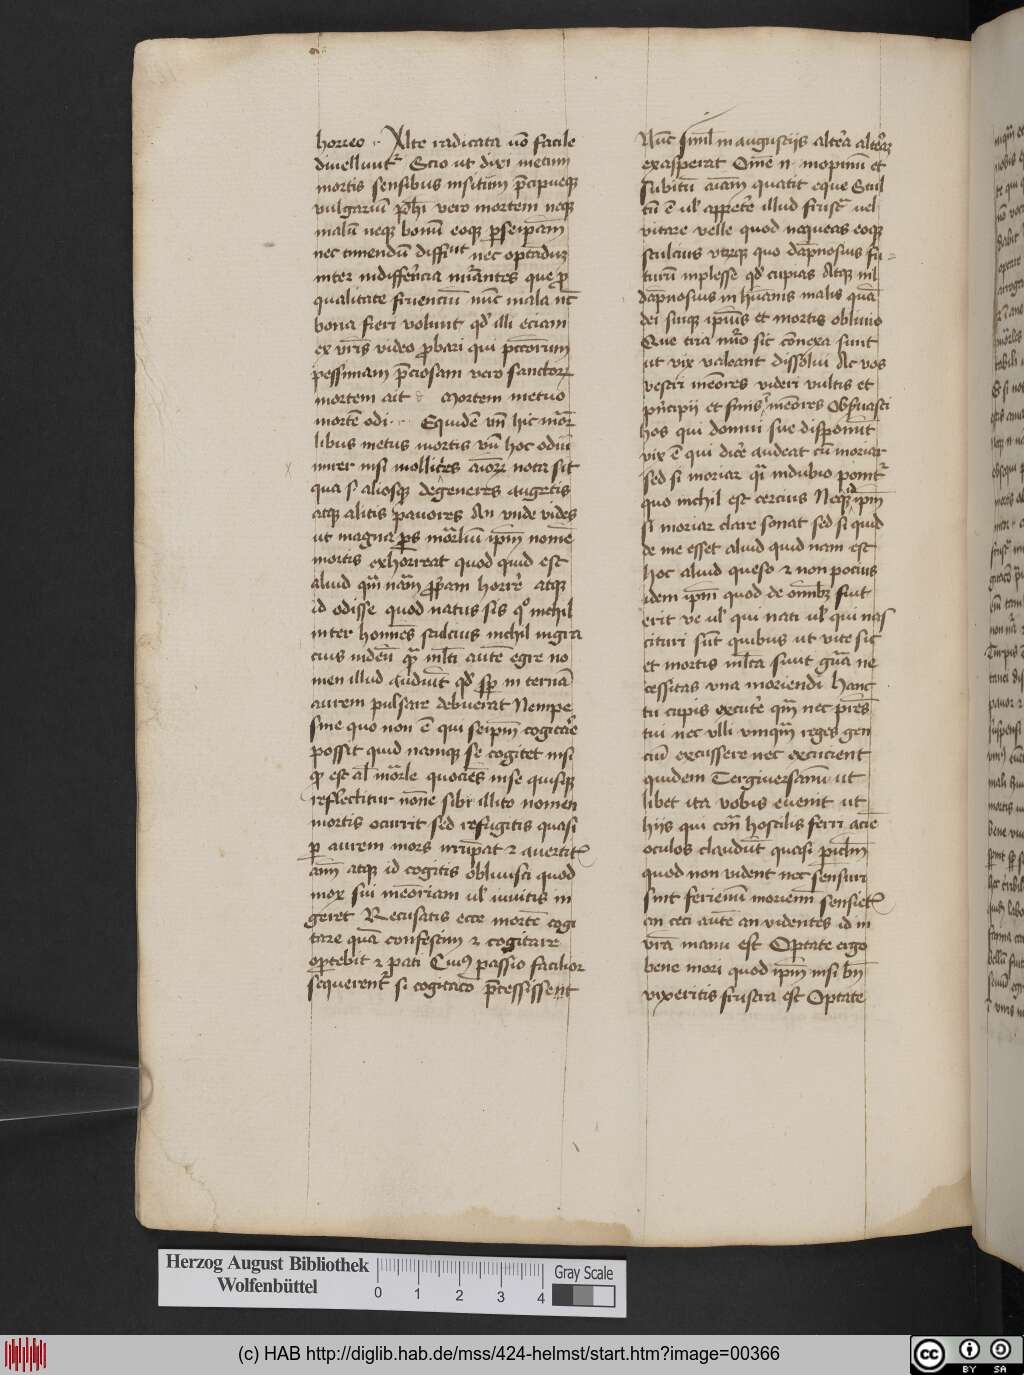 horreo Alte radicata nō facile
divellunt᷑ Scio ut dixi metum
mortis sensibus insitum p̄cipueqꝫ
vulgariū ph̄i vero mortem neqꝫ
malū neqꝫ bonū eoqꝫ ꝑ seipsam
nec timendū diffiniūt nec optandūqꝫ
inter indifferēcia nūantes que ꝓ
qualitate fruenciū nūc mala nūc
bona fieri volunt qď illi eciam
ex vīris video ꝓbari qui pctōrum
pessimam p̄ciosam vero sanctorꝝ
mortem ait Mortem metuo
mortē odi Equidē vn̄ hic mōr
libus metus mortis vn̄ hoc odiū
mirer nisi mollicies aīorꝝ nota sit
qua s aliosqꝫ degeneres augetis
atqꝫ alitis pavores An vnde vides
ut magna ꝑs mōrliū ipm̄ nomē
mortis exhorreat quod quid est
aliud qm̄ nām ꝓpam horrē atqꝫ
id odisse quod natus sis qͦ nichil
inter homīes stulcius nichil ingra
cius indeū mlti autē egre no
men illud audiūt qď sꝑ internā
aurem pulsare debuerat Nempe
sine quo non ē qui seipm̄ cogitāre
possit quid namqꝫ se cogitet nisi
qď est al mōrle quociēs in se quisqꝫ
reflectitur nōne sibi illico nomen
mortis ocurrit sed refugitis quasi
ꝑ aurem mors irrūpat ⁊ avertitꝭ
aīm atqꝫ id cogitis oblivisci quod
mox sui mēoriam uľ invitis in
geret Recusatis ecce mortē cogi
tare quā confestim ⁊ cogitare
oportebit ⁊ pati Cuiꝰ passio facilior
sequerent᷑ si cogitacō p̄cessissent
Nūc siml in augustijs altera alterā
exasperat Omē n inopinū et
subitū aīam quatit eque Stul
tū ē uľ appetē illud frust᷑ vel
vitare velle quod nequeas eoqꝫ
stulcius vtrqꝫ quo dāpnosius fu
turū inplesse qď cupias Atqꝫ nľ
dāpnosius in hūanis malis quā
dei suiqꝫ ipsius et mortis oblivio
Que tria nūo sic cōnexa sunt
ut vix valeant dissolui Ac vos
vestri mēores videri vultis et
pn̄cipii et finis īmēores Obseruasti
hos qui domui sue disponūt
vix ē qui dicē audeat cū moriar
sed si moriar qͣi in dubio ponit᷑
quo nichil est cercius Neqꝫ id ipm̄
si moriar clare sonat sed si quid
de me esset aliud quid nam est
hoc aliud queso ⁊ non pocius
idem ipm̄ quod de omībꝫ fuit
erit ve uľ qui nati uľ qui nas
cituri sūt quibus ut vite sic
et mortis mlta sunt gn̄a ne
cessitas vna moriendi Hanc
tu cupis excutē qm̄ nec pr̄es
tui nec vlli vnqm̄ reges gen
ciū excussere nec excucient
quidem Tergiversam̄ ut
libet ita vobis evenit ut
hijs qui cōn̄ hostilis ferri aciē
oculos claudūt quasi pic̄lm
quod non vident nec sensuri
sint ferienī morienī sensietꝭ
an ceci autē an videntes id in
vīra manu est Optate ergo
bene mori quod ipm̄ nisi bn̄
vixeritis frustra est Optate
Herzog August Bibliothek
Wolfenbüttel
0 1 2 3 4
Gray Scale
(c) HAB http://diglib.hab.de/mss/424-helmst/start.htm?image=00366
cc BY SA